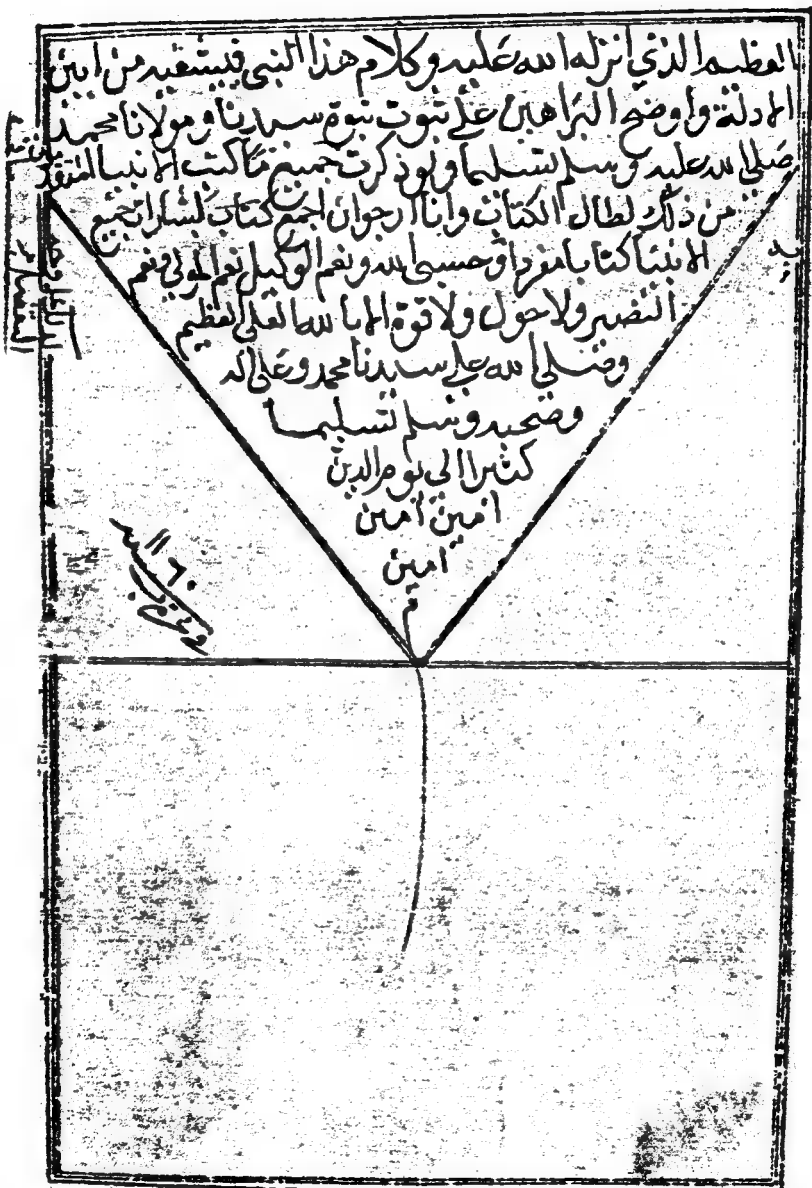 العظيم الذي انزله الله عليه وكلام هذا النبي فيشقيه من ابين
الادلة واوضح البراهين على ثبوت نبوة سيدنا ومولانا محمد
صلى الله عليه وسلم تسليما ولو ذكرت جميع ما كتب الانبيا
من ذلك لطال الكتاب وانا ارجوان اجمع كتاب بشارات جميع
الانبيا كتابا مفردا وحسبي الله ونعم الوكيل نعم المولي ونعم
النصير ولا حول ولا قوة الا بالله العلى العظيم
وصلى الله على سيدنا محمد وعلى اله
وصحبه وسلم تسليما
كثيرا الى يوم الدين
امين امين
امين
م
١١٦٠